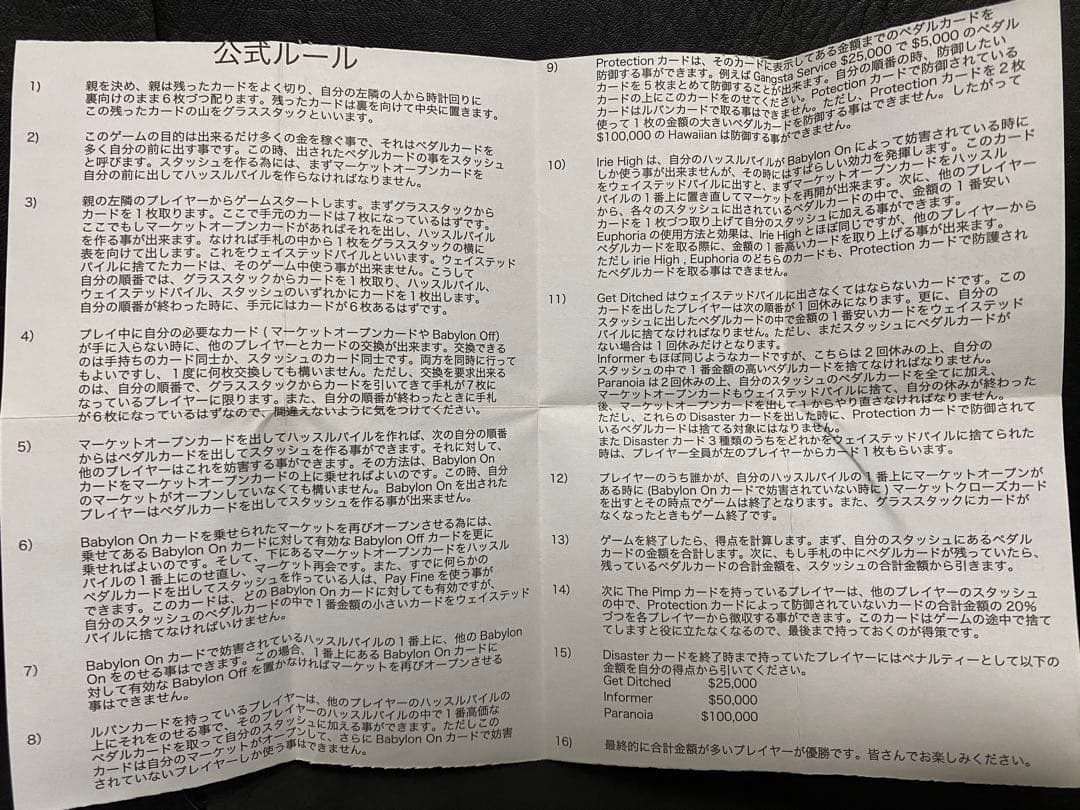 公式ルール
1) 親を決め、親は残ったカードをよく切り、自分の左隣の人から時計回りに
裏向けのまま6枚づつ配ります。残ったカードは裏を向けて中央に置きます。
この残ったカードの山をグラススタックといいます。
2) このゲームの目的は出来るだけ多くの金を稼ぐ事で、それはペダルカードを
多く自分の前に出す事です。この時、出されたペダルカードの事をスタッシュ
と呼びます。スタッシュを作る為には、まずマーケットオープンカードを
自分の前に出してハッスルパイルを作らなければなりません。
3) 親の左隣のプレイヤーからゲームスタートします。まずグラススタックから
カードを1枚取ります。ここで手元のカードは7枚になっているはずです。
ここでもしマーケットオープンカードがあればそれを出し、ハッスルパイル
を作る事が出来ます。なければ手札の中から1枚をグラススタックの横に
表を向けて出します。これをウェイステッドパイルといいます。ウェイステッド
パイルに捨てたカードは、そのゲーム中使う事が出来ません。こうして
自分の順番では、グラススタックからカードを1枚取り、ハッスルパイル、
ウェイステッドパイル、スタッシュのいずれかにカードを1枚出します。
自分の順番が終わった時に、手元にはカードが6枚あるはずです。
4) プレイ中に自分の必要なカード(マーケットオープンカードやBabylon Off)
が手に入らない時に、他のプレイヤーとカードの交換が出来ます。交換できる
のは手持ちのカード同士か、スタッシュのカード同士です。両方を同時に行って
もよいですし、1度に何枚交換しても構いません。ただし、交換を要求出来る
のは、自分の順番で、グラススタックからカードを引いてきて手札が7枚に
なっているプレイヤーに限ります。また、自分の順番が終わったときに手札
が6枚になっているはずなので、間違えないように気をつけてください。
5) マーケットオープンカードを出してハッスルパイルを作れば、次の自分の順番
からはペダルカードを出してスタッシュを作る事ができます。それに対して、
他のプレイヤーはこれを妨害する事ができます。その方法は、Babylon On
カードをマーケットオープンカードの上に乗せればよいのです。この時、自分
のマーケットがオープンしていなくても構いません。Babylon Onを出された
プレイヤーはペダルカードを出してスタッシュを作る事が出来ません。
6) Babylon Onカードを乗せられたマーケットを再びオープンさせる為には、
乗せてあるBabylon Onカードに対して有効なBabylon Offカードを更に
乗せればよいのです。そして、下にあるマーケットオープンカードをハッスル
パイルの1番上にのせ直し、マーケット再会です。また、すでに何らかの
ペダルカードを出してスタッシュを作っている人は、Pay Fineを使う事が
できます。このカードは、どのBabylon Onカードに対しても有効ですが、
自分のスタッシュのペダルカードの中で1番金額の小さいカードをウェイステッド
パイルに捨てなければいけません。
7) Babylon Onカードで妨害されているハッスルパイルの1番上に、他のBabylon
Onをのせる事はできます。この場合、1番上にあるBabylon Onカードに
対して有効なBabylon Offを置かなければマーケットを再びオープンさせる
事はできません。
8) ルパンカードを持っているプレイヤーは、他のプレイヤーのハッスルパイルの
上にそれをのせる事で、そのプレイヤーのハッスルパイルの中で1番高価な
ペダルカードを取って自分のスタッシュに加える事ができます。ただしこの
カードは自分のマーケットがオープンして、さらにBabylon Onカードで妨害
されていないプレイヤーしか使う事はできません。
9) Protectionカードは、そのカードに表示してある金額までのペダルカードを
防御する事ができます。例えばGangsta Service $25,000で$5,000のペダル
カードを5枚まとめて防御することが出来ます。自分の順番の時、防御したい
カードの上にこのカードをのせてください。Potectionカードで防御されている
カードはルパンカードで取る事はできません。ただし、Protectionカードを2枚
使って1枚の金額の大きいペダルカードを防御する事はできません。したがって
$100,000のHawaiianは防御する事ができません。
10) Irie Highは、自分のハッスルパイルがBabylon Onによって妨害されている時に
しか使う事が出来ませんが、その時にはすばらしい効力を発揮します。このカード
をウェイステッドパイルに出すと、まずマーケットオープンカードをハッスル
パイルの1番上に置き直してマーケットを再開が出来ます。次に、他のプレイヤー
から、各々のスタッシュに出されているペダルカードの中で、金額の1番安い
カードを1枚づつ取り上げて自分のスタッシュに加える事ができます。
Euphoriaの使用方法と効果は、Irie Highとほぼ同じですが、他のプレイヤーから
ペダルカードを取る際に、金額の1番高いカードを取り上げる事が出来ます。
ただしirie High , Euphoriaのどちらのカードも、Protectionカードで防護され
たペダルカードを取る事はできません。
11) Get Ditchedはウェイステッドパイルに出さなくてはならないカードです。この
カードを出したプレイヤーは次の順番が1回休みになります。更に、自分の
スタッシュに出したペダルカードの中で金額の1番安いカードをウェイステッド
パイルに捨てなければなりません。ただし、まだスタッシュにペダルカードが
ない場合は1回休みだけとなります。
Informerもほぼ同じようなカードですが、こちらは2回休みの上、自分の
スタッシュの中で1番金額の高いペダルカードを捨てなければなりません。
Paranoiaは2回休みの上、自分のスタッシュのペダルカードを全てに加え、
マーケットオープンカードもウェイステッドパイルに捨て、自分の休みが終わった
後、マーケットオープンカードを出して1からやり直さなければなりません。
ただし、これらのDisasterカードを出した時に、Protectionカードで防御されて
いるペダルカードは捨てる対象にはなりません。
またDisasterカード3種類のうちをどれかをウェイステッドパイルに捨てられた
時は、プレイヤー全員が左のプレイヤーからカード1枚もらいます。
12) プレイヤーのうち誰かが、自分のハッスルパイルの1番上にマーケットオープンが
ある時に(Babylon Onカードで妨害されていない時に)マーケットクローズカード
を出すとその時点でゲームは終了となります。また、グラススタックにカードが
なくなったときもゲーム終了です。
13) ゲームを終了したら、得点を計算します。まず、自分のスタッシュにあるペダル
カードの金額を合計します。次に、もし手札の中にペダルカードが残っていたら、
残っているペダルカードの合計金額を、スタッシュの合計金額から引きます。
14) 次にThe Pimpカードを持っているプレイヤーは、他のプレイヤーのスタッシュ
の中で、Protectionカードによって防御されていないカードの合計金額の20%
づつを各プレイヤーから徴収する事ができます。このカードはゲームの途中で捨て
てしますと役に立たなくなるので、最後まで持っておくのが得策です。
15) Disasterカードを終了時まで持っていたプレイヤーにはペナルティーとして以下の
金額を自分の得点から引いてください。
Get Ditched $25,000
Informer $50,000
Paranoia $100,000
16) 最終的に合計金額が多いプレイヤーが優勝です。皆さんでお楽しみください。